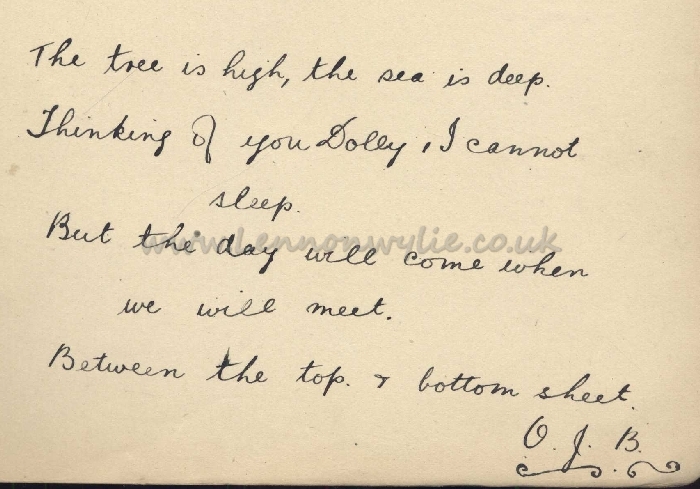 The tree is high, the sea is deep.
Thinking of you Dolly, I cannot
sleep.
But the day will come when
www.lennonwylie.co.uk
we will meet.
Between the top. & bottom sheet.
O. J. B.